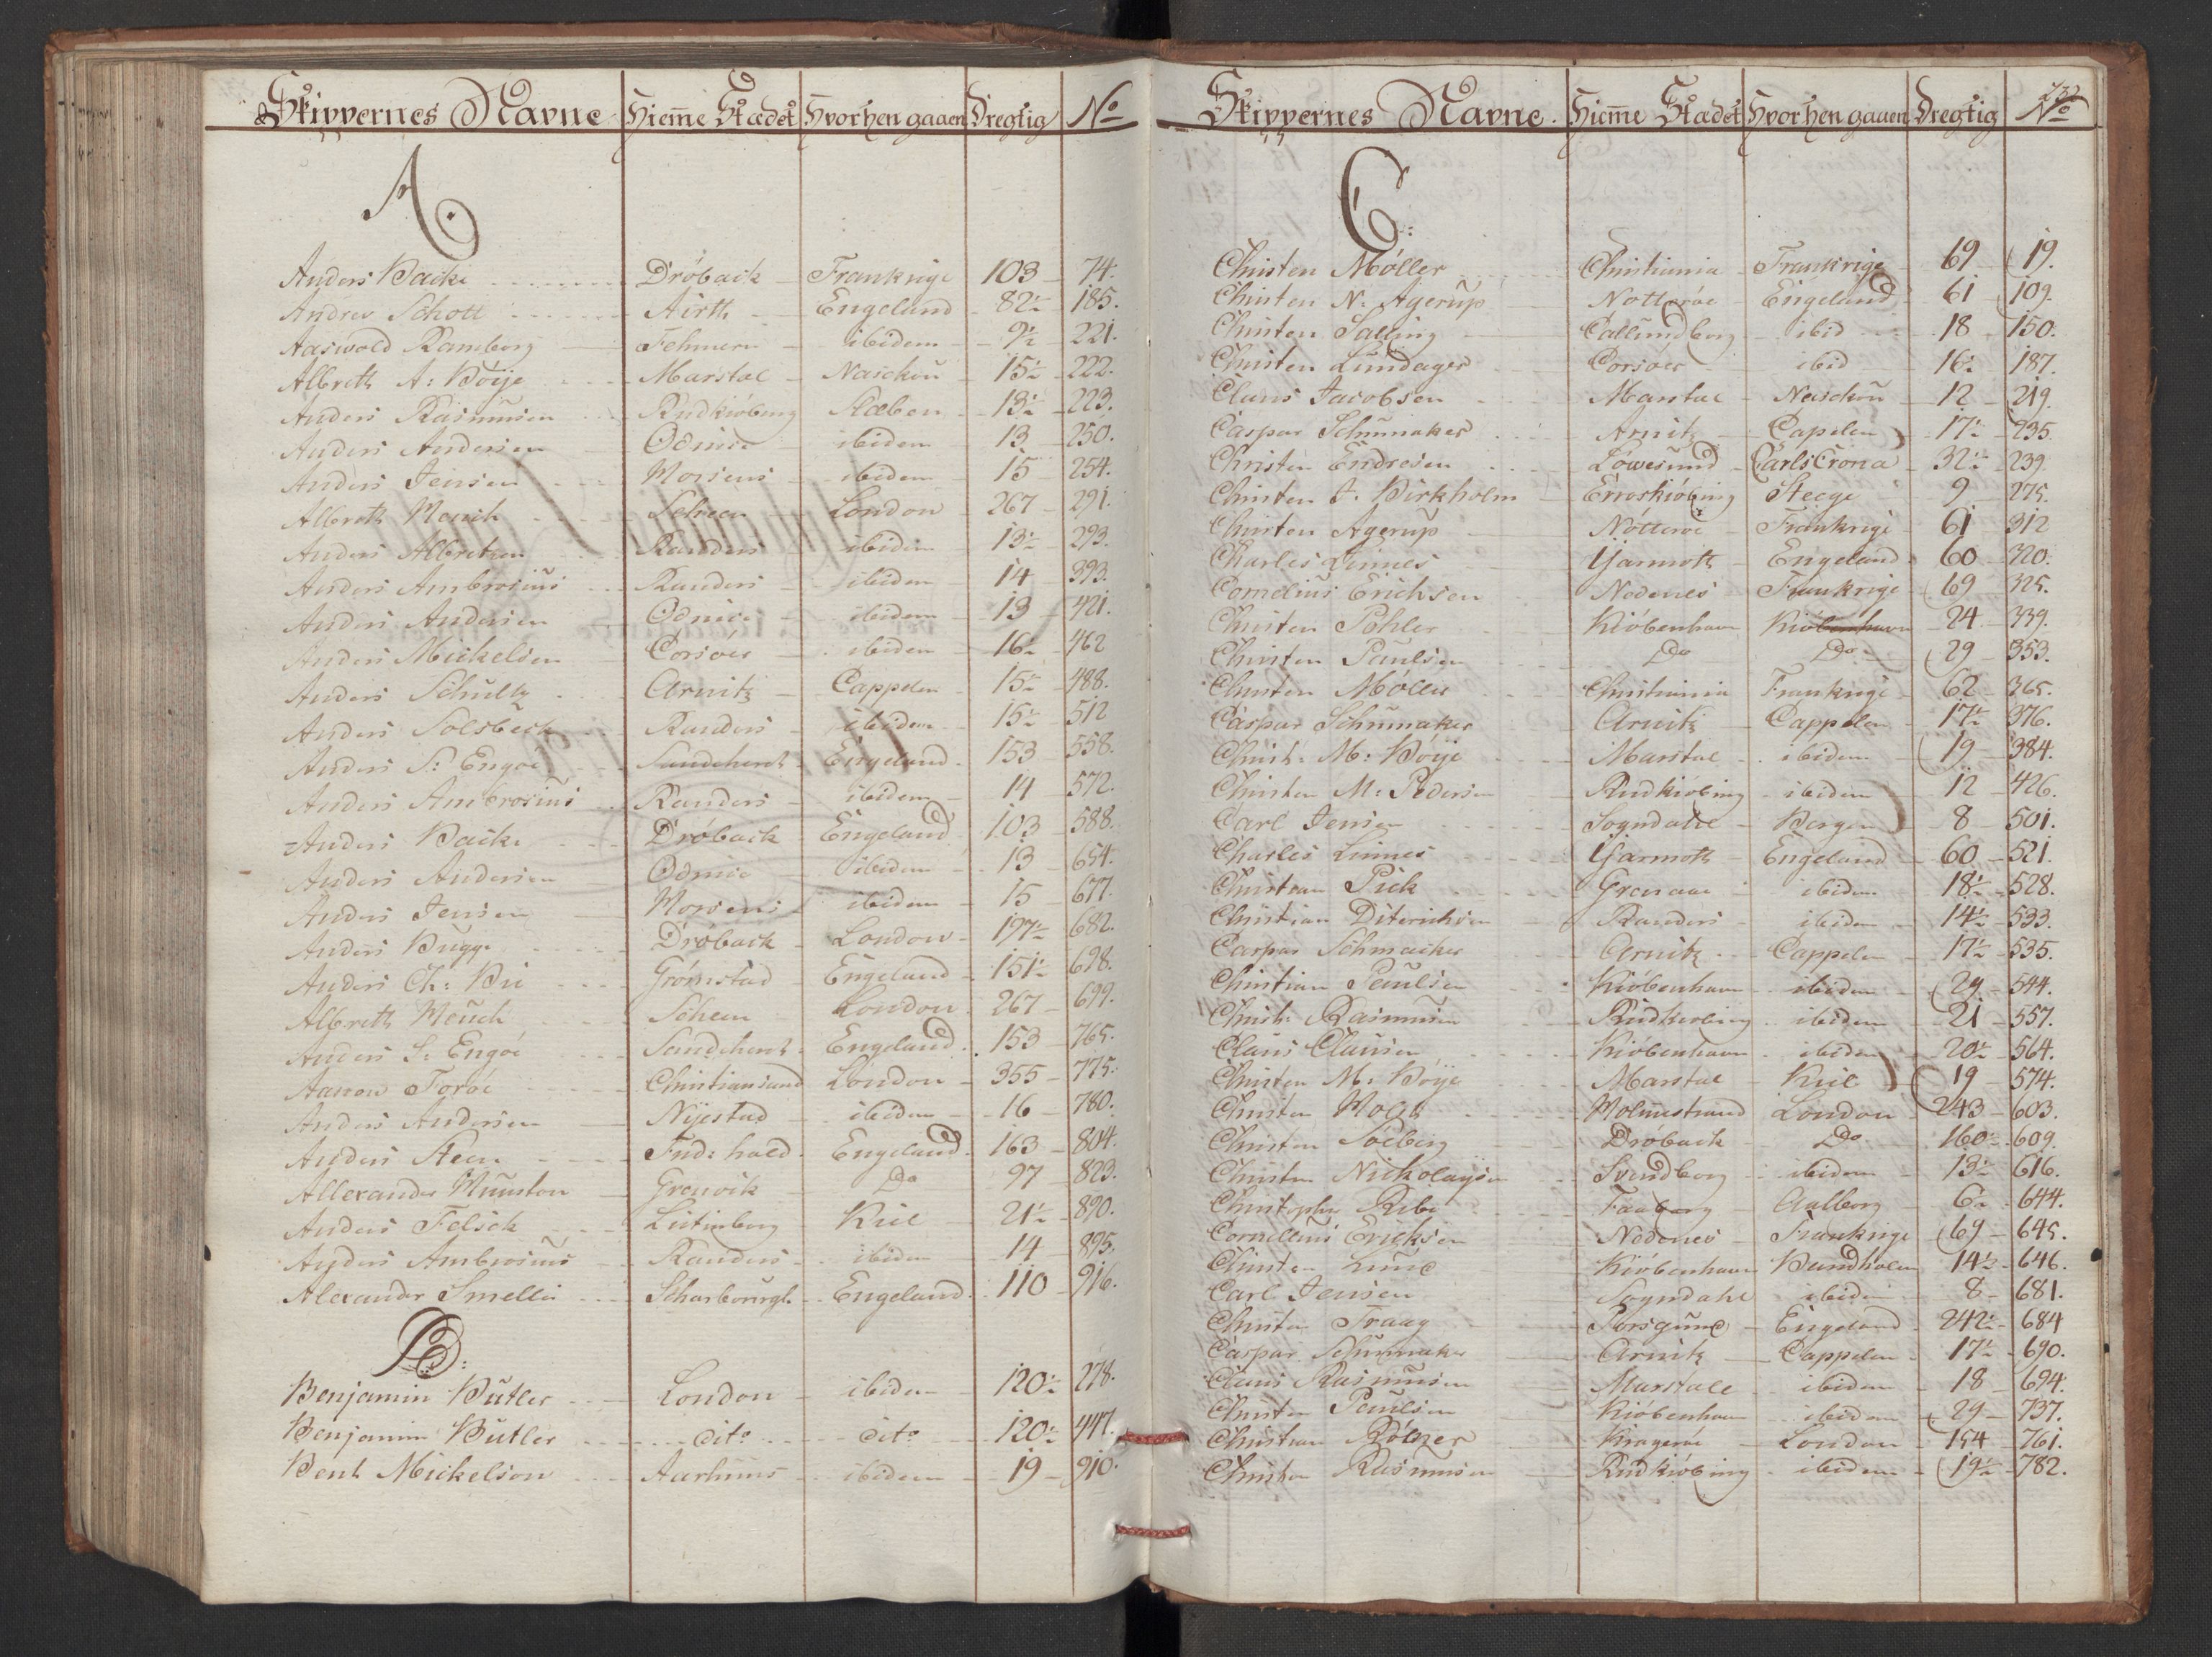 Skippernes Navne Hiem̅e Stædet Hvorhen gaaen Dregtig No
A.
Anders Backe Dróback Frankrige 103 74.
Andrev Schott Airth Engeland 82½ 185.
Aaswold Ramborg Fehmern ibidem 9½ 221.
Albreth A: Bóije Marstal Naschou 15½ 222.
Anders Rasmusen Rudkióbing 13½ 223.
Anders Andersen Odense ibidem 13 250.
Anders Jensen Horsens ibidem 15 254.
Albreth Mench Scheen London 267 291.
Anders Albretsen Randers ibidem 13½ 293.
Anders Ambrosius Randers ibidem 14 393.
Anders Andersen Odense ibidem 13 421.
Anders Mickelsen Corsóer ibidem 16½ 462
Anders Schultz Arnitz Cappelen 15½ 488.
Anders Solsbeck Randers ibidem 15½ 512
Anders S: Engóe Sandeheret Engeland 153 558.
Anders Ambrosius Randers ibidem 14 572.
Anders Backe Dróback Engeland 103 588.
Anders Andersen Odense ibidem 13 654.
Anders Jensen Horsens ibidem 15 677.
Anders Bugge Dróback London 197½ 682.
Anders Ch: Bie Grómstad Engeland 151½ 698.
Albreth Mench Scheen London 267 699.
Anders S: Engóe Sandeheret Engeland 153 765.
Aanon Foróe Christiansand London 355 775.
Anders Andersen Nijestad ibidem 16 780.
Anders Steen Frid: hald Engeland 163 804.
Allexander Munston Grenvik Do 97 823.
Anders Felsch Lutinborg Kiel 21½ 890.
Anders Ambrosius Randers ibidem 14 895.
Alexander Smellie Scharbourgh Engeland 110 916.
B:
Benjamin Butler London ibidem 120½ 278.
Benjamin Butler dito dito 120½ 447.
Bent Mickelson Aarhuus ibidem 19 910.
732
Skippernes Navne. Hiem̅e Stædet Hvorhen gaaen Dregtig No
C:
Christen Móller Christiania Frankrige 69 19.
Christen N: Agerup Notteróe Engeland 61 109.
Christen Salling Callundborg ibid 18 150.
Christen Lundager Corsóer ibid 16½ 187.
Claus Jacobsen Marstal Naschou 12 219.
Caspar Schumaker Arnitz Capelen 17½ 235.
Christen Endresen Lówesund CarlsCrona 32½ 239.
Christen J. Birkholm Erroskióbing Steege 9 275.
Christen Agerup Nótteroe Frankrige 61 312
Charles Linnes Yarmoth Engeland 60 320.
Cornelius Erichsen Nedenes Frankrige 69 325.
Christen Pohler Kióbenhavn Kióbenhavn 24 339.
Christen Paulsen Do Do 29 353.
Christen Móller Christiania Frankrige 62 365.
Caspar Schumaker Arnitz Cappelen 17½ 376.
Christ: M: Bóije Marstal ibidem 19 384.
Christen M: Pedersen Rudkióbing ibidem 12 426.
Carl Jensen Sogndahl Bergen 8 501.
Charles Linnes Yarmoth Engeland 60 521.
Christian Pick Grenaae ibidem 18½ 528.
Christian Diterichsen Randers ibidem 14½ 533.
Caspar Schmacker Arnitz Cappelen 17½ 535.
Christian Paulsen Kióbenhavn ibidem 29 544.
Christ: Rasmusen Rudkiobing ibidem 21 557.
Claus Clausen Kióbenhavn ibidem 20½ 564.
Christen M: Bóije Marstal Kiel 19 574.
Christen Holst Holmestrand London 243 603.
Christen Sóeberg Dróback Do 160½ 609.
Christen Nickolaysen Svendborg ibidem 13½ 616.
Christopher Ribe Faaborg Aalborg 6½ 644.
Cornellius Ericksen Nedenes Frankrige 69 645.
Christen Lund Kióbenhavn Bandholm 14½ 646.
Carl Jensen Sogndahl ibidem 8 681.
Christen Traag Porsgund Engeland 242½ 684
Caspar Schumaker Arnitz Cappelen 17½ 690.
Claus Rasmusen Marstall ibidem 18 694.
Christen Paulsen Kióbenhavn ibidem 29 737.
Christian Kragerøe London 154 761.
Christen Rasmusen Rudkióbing ibidem 19½ 782.